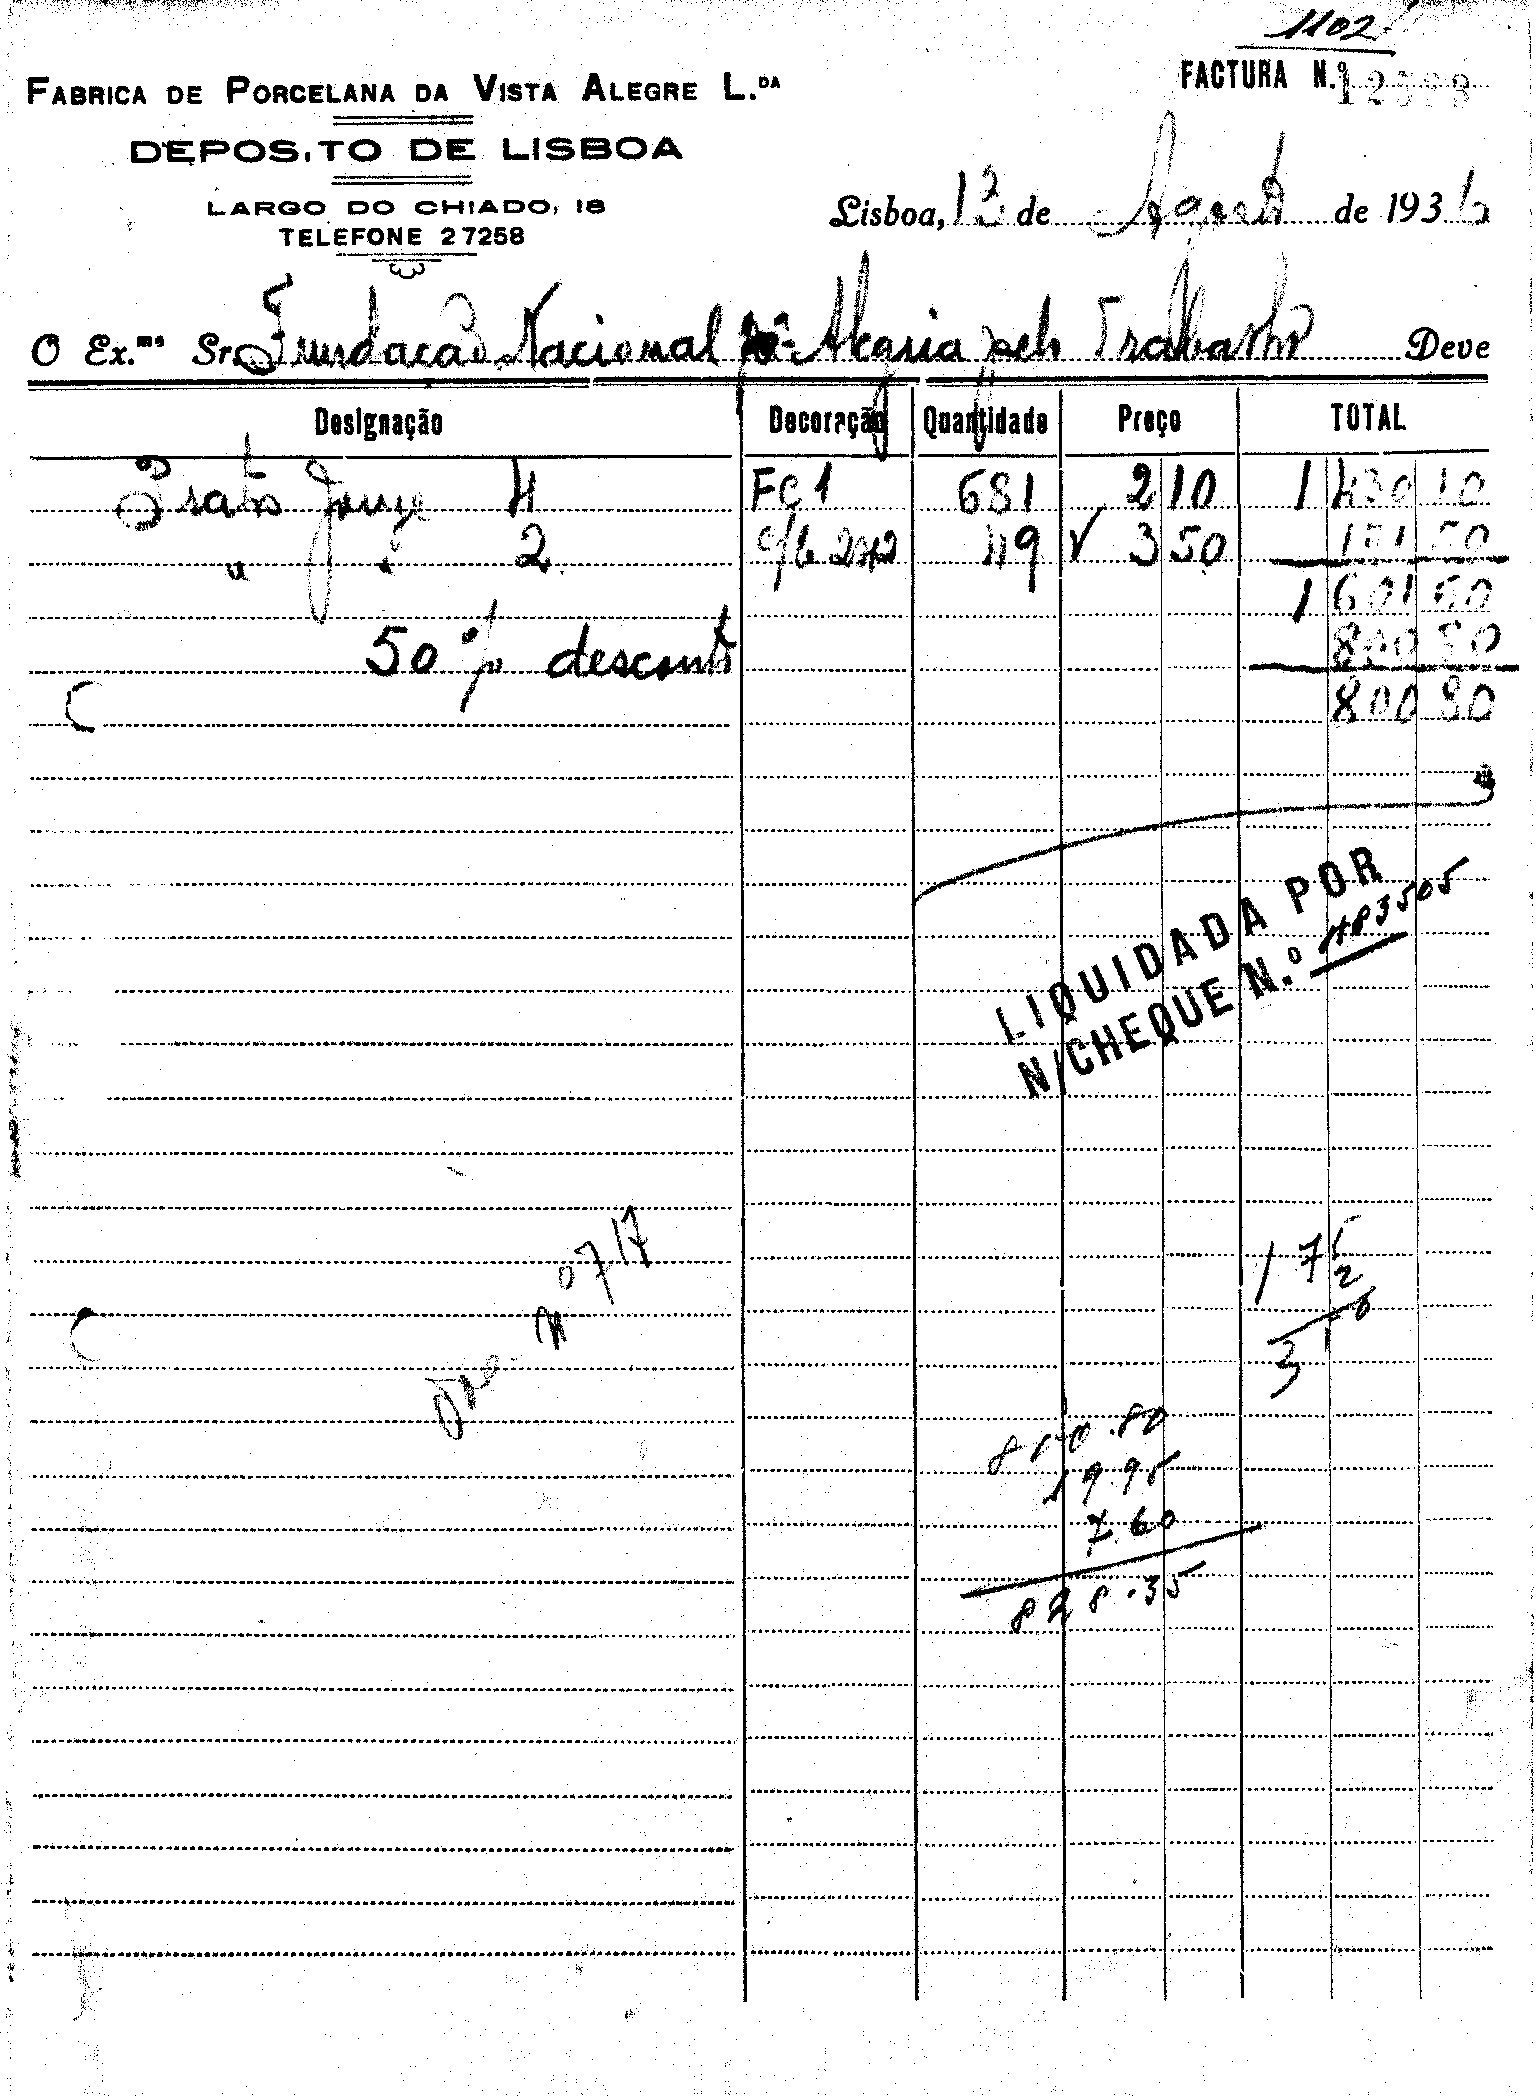 1102
FABRICA DE PORCELANA DA VISTA ALEGRE L.DA
FACTURA N.º
DEPOSITO DE LISBOA
LARGO DO CHIADO, 18
TELEFONE 27258
Lisboa, 13 de Agosto de 1936
O Ex.mo Sr. Fundação Nacional pª Alegria pelo Trabalho Deve
Designação Decoração Quantidade Preço TOTAL
Prato Jorge 4 FC1 681 2 10 1 430 10
" " 2 49 3 50 171 50
1 601 60
50% desconto 800 80
800 80
LIQUIDADA POR
N/CHEQUE N.º 483505
717
175
2
3
800.80
19.95
7.60
828.35